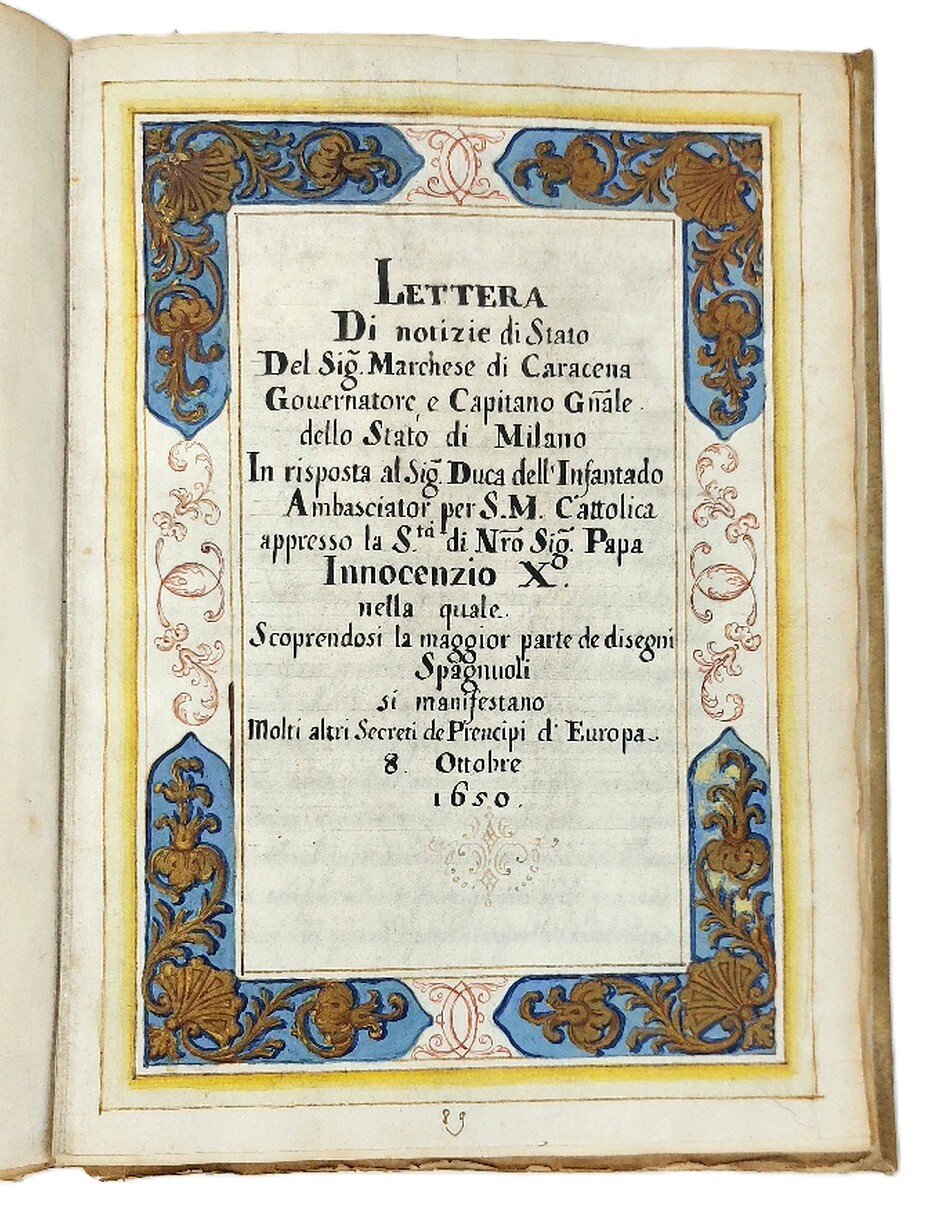 LETTERA
Di notizie di Stato
Del Sig̃. Marchese di Caracena
Gouernatore e Capitano Gñale.
dello Stato di Milano
In risposta al Sig̃. Duca dell'Infantado
Ambasciator per S.M. Cattolica
appresso la S.tà di Nrõ Sig̃. Papa
Innocenzio X.
nella quale.
Scoprendosi la maggior parte de disegni
Spagnuoli
si manifestano
Molti altri Secreti de Prencipi d'Europa.
8. Ottobre
1650.
89